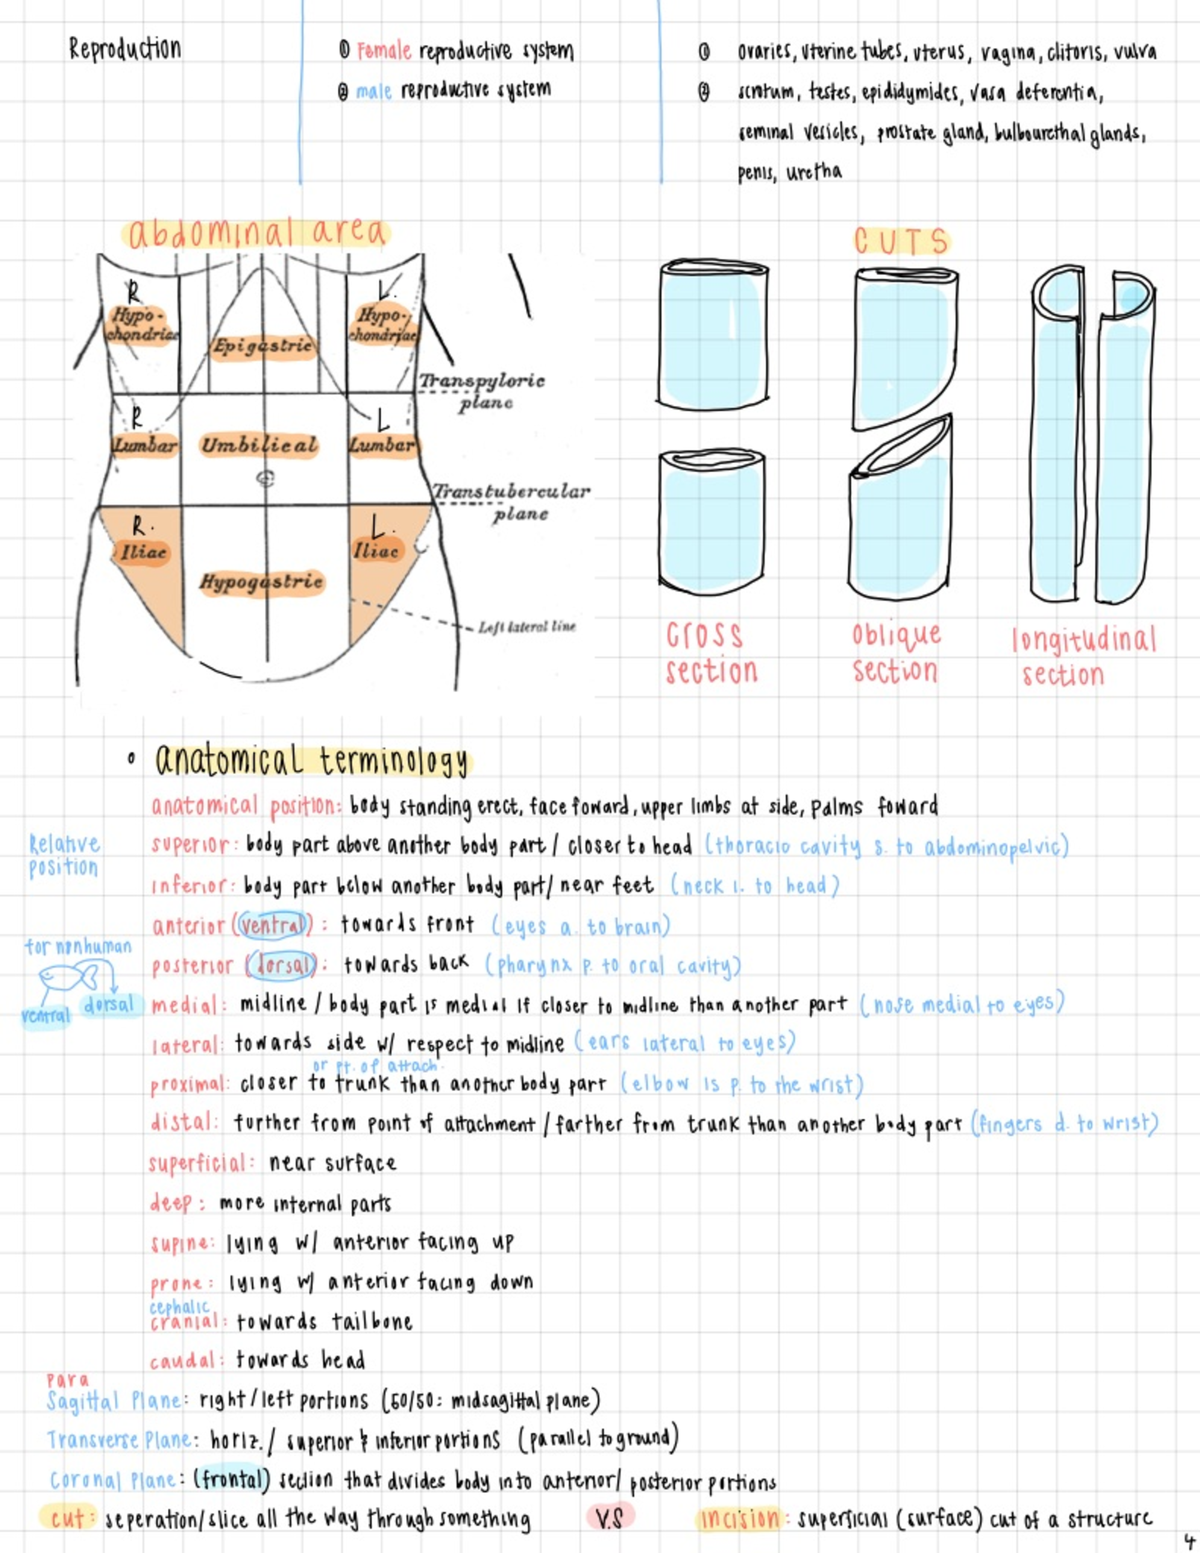 Reproduction
① Female reproductive system
② male reproductive system
① ovaries, uterine tubes, uterus, vagina, clitoris, vulva
② scrotum, testes, epididymides, vasa deferentia,
seminal vesicles, prostate gland, bulbourethal glands,
penis, uretha
abdominal area
R
Hypo-
chondriac
Epigastric
L.
Hypo-
chondriac
Transpyloric
plane
R
Lumbar
Umbilical
L
Lumbar
Transtubercular
plane
R.
Iliac
Hypogastric
L.
Iliac
Left lateral line
CUTS
cross
section
oblique
section
longitudinal
section
• anatomical terminology
anatomical position: body standing erect, face foward, upper limbs at side, palms foward
Relative
position
superior: body part above another body part / closer to head (thoracic cavity s. to abdominopelvic)
inferior: body part below another body part/ near feet (neck i. to head)
anterior (ventral): towards front (eyes a. to brain)
posterior (dorsal): towards back (pharynx p. to oral cavity)
for nonhuman
ventral
dorsal
medial: midline / body part is medial if closer to midline than another part (nose medial to eyes)
lateral: towards side w/ respect to midline (ears lateral to eyes)
or pt. of attach.
proximal: closer to trunk than another body part (elbow is p. to the wrist)
distal: further from point of attachment / farther from trunk than another body part (fingers d. to wrist)
superficial: near surface
deep: more internal parts
supine: lying w/ anterior facing up
prone: lying w/ anterior facing down
cephalic
cranial: towards tailbone
caudal: towards head
para
Sagittal Plane: right/left portions (50/50: midsagittal plane)
Transverse Plane: horiz./ superior & inferior portions (parallel to ground)
Coronal Plane: (frontal) section that divides body into anterior/ posterior portions
cut: seperation/slice all the way through something V.S incision: superficial (surface) cut of a structure
4